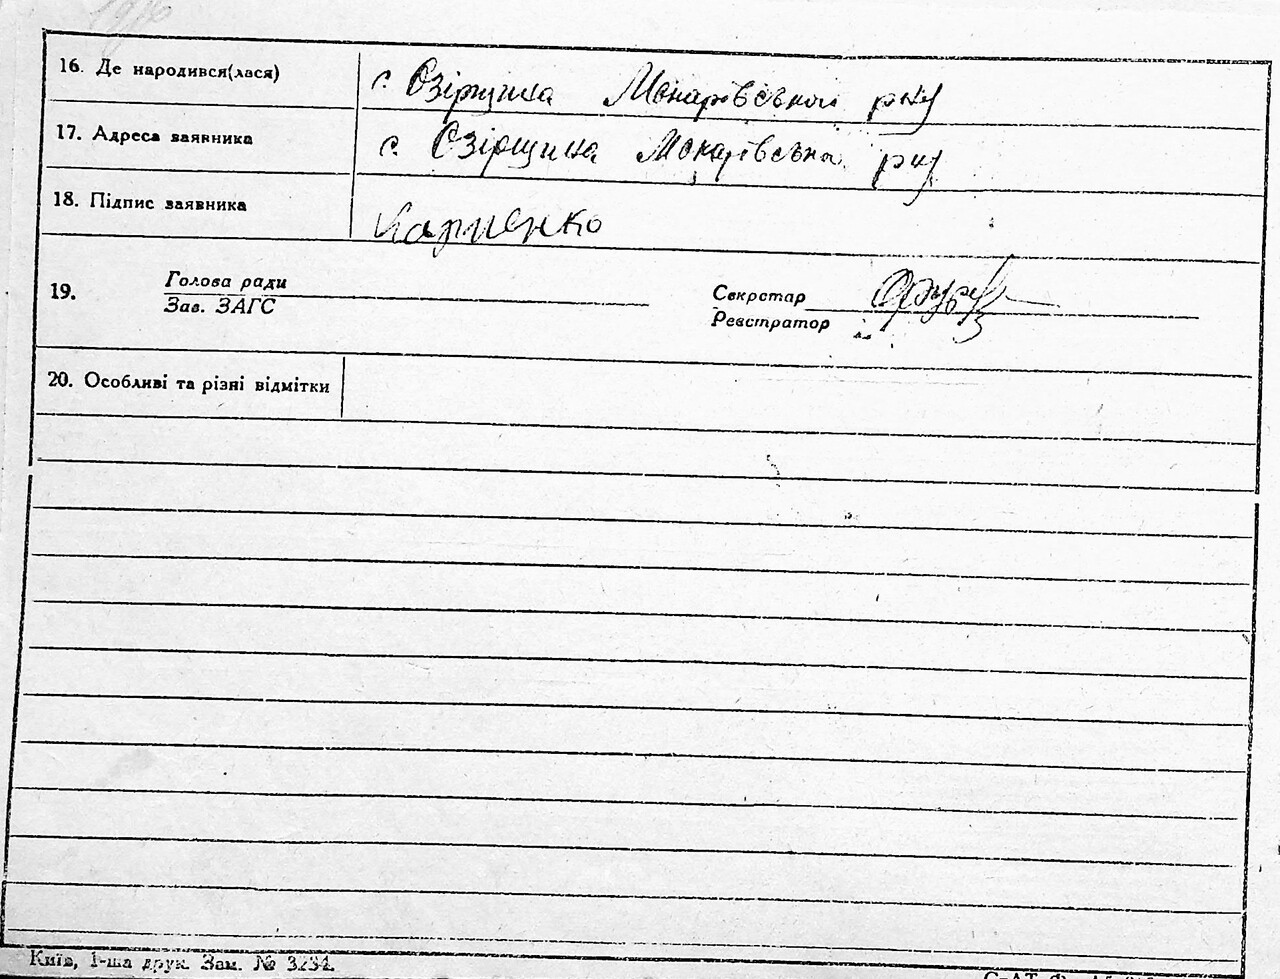 16. Де народився(лася) с. Озірщина Макарівський р-ну
17. Адреса заявника с. Озірщина Макарівська р-ну
18. Підпис заявника Карпенко
19. Голова ради
Зав. ЗАГС
Секретар
Реєстратор
20. Особливі та різні відмітки
Київ, 1-ша друк. Зам. № 3234.